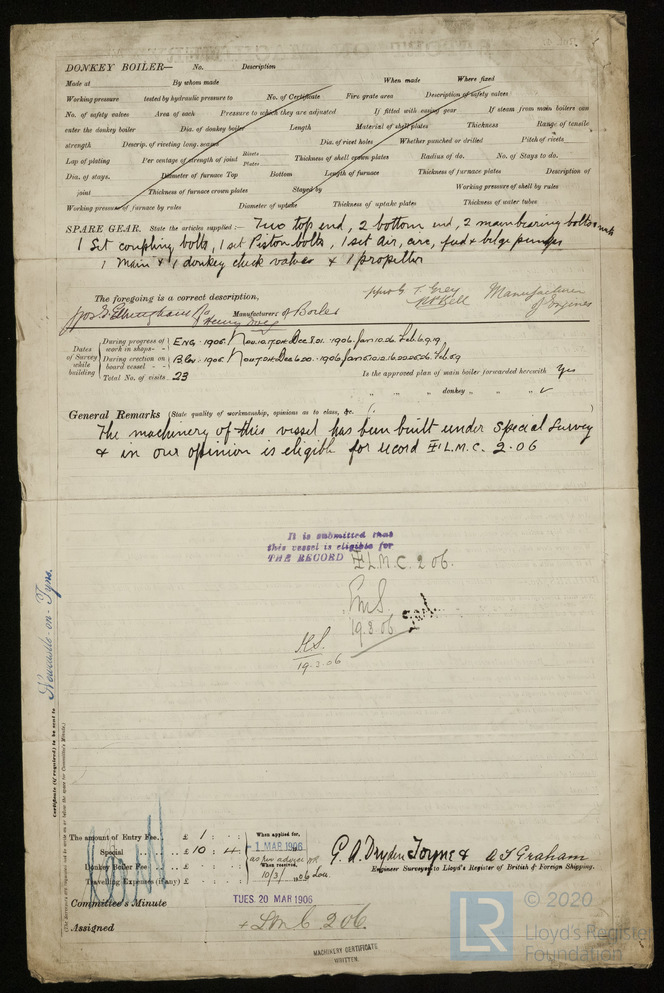 DONKEY BOILER— No. Description
Made at By whom made When made Where fixed
Working pressure tested by hydraulic pressure to No. of Certificate Fire grate area Description of safety valves
No. of safety valves Area of each Pressure to which they are adjusted If fitted with easing gear If steam from main boilers can
enter the donkey boiler Dia. of donkey boiler Length Material of shell plates Thickness Range of tensile
strength Descrip. of riveting long. seams Dia. of rivet holes Whether punched or drilled Pitch of rivets
Lap of plating Per centage of strength of joint Rivets Plates Thickness of shell crown plates Radius of do. No. of Stays to do.
Dia. of stays. Diameter of furnace Top Bottom Length of furnace Thickness of furnace plates Description of
joint Thickness of furnace crown plates Stayed by Working pressure of shell by rules
Working pressure of furnace by rules Diameter of uptake Thickness of uptake plates Thickness of water tubes
SPARE GEAR. State the articles supplied:— Two top end, 2 bottom end, 2 main bearing bolts & nuts
1 Set coupling bolts, 1 set Piston bolts, 1 set air, circ, feed & bilge pumps
1 Main & 1 donkey check valves & 1 propeller
The foregoing is a correct description,
Manufacturer of Boiler
ppro G. T. Grey Manufacturer
of Engines
Dates of Survey while building
During progress of work in shops - - ENG: 1905
During erection on board vessel - - -
Total No. of visits 23
Is the approved plan of main boiler forwarded herewith Yes
" " " donkey " " " ✓
General Remarks (State quality of workmanship, opinions as to class, &c.
The machinery of this vessel has been built under Special Survey
& in our opinion is eligible for record L.M.C. 2.06
It is submitted that
this vessel is eligible for
THE RECORD L.M.C. 2 06.
19.3.06
19.3.06
Certificate (if required) to be sent to Newcastle-on-Tyne.
(The Surveyors are requested not to write on or below the space for Committee's Minute.)
The amount of Entry Fee .. £ 1 : : When applied for,
Special .. .. £ 10 : 4 : 1 MAR 1906
Donkey Boiler Fee .. £ : : When received,
Travelling Expenses (if any) £ : : 10/3/1906
G. A. Dryden Toyne & A J Graham
Engineer Surveyors to Lloyd's Register of British & Foreign Shipping.
Committee's Minute TUES 20 MAR 1906
Assigned + LMC 2 06.
MACHINERY CERTIFICATE
WRITTEN.
LR
© 2020
Lloyd's Register
Foundation